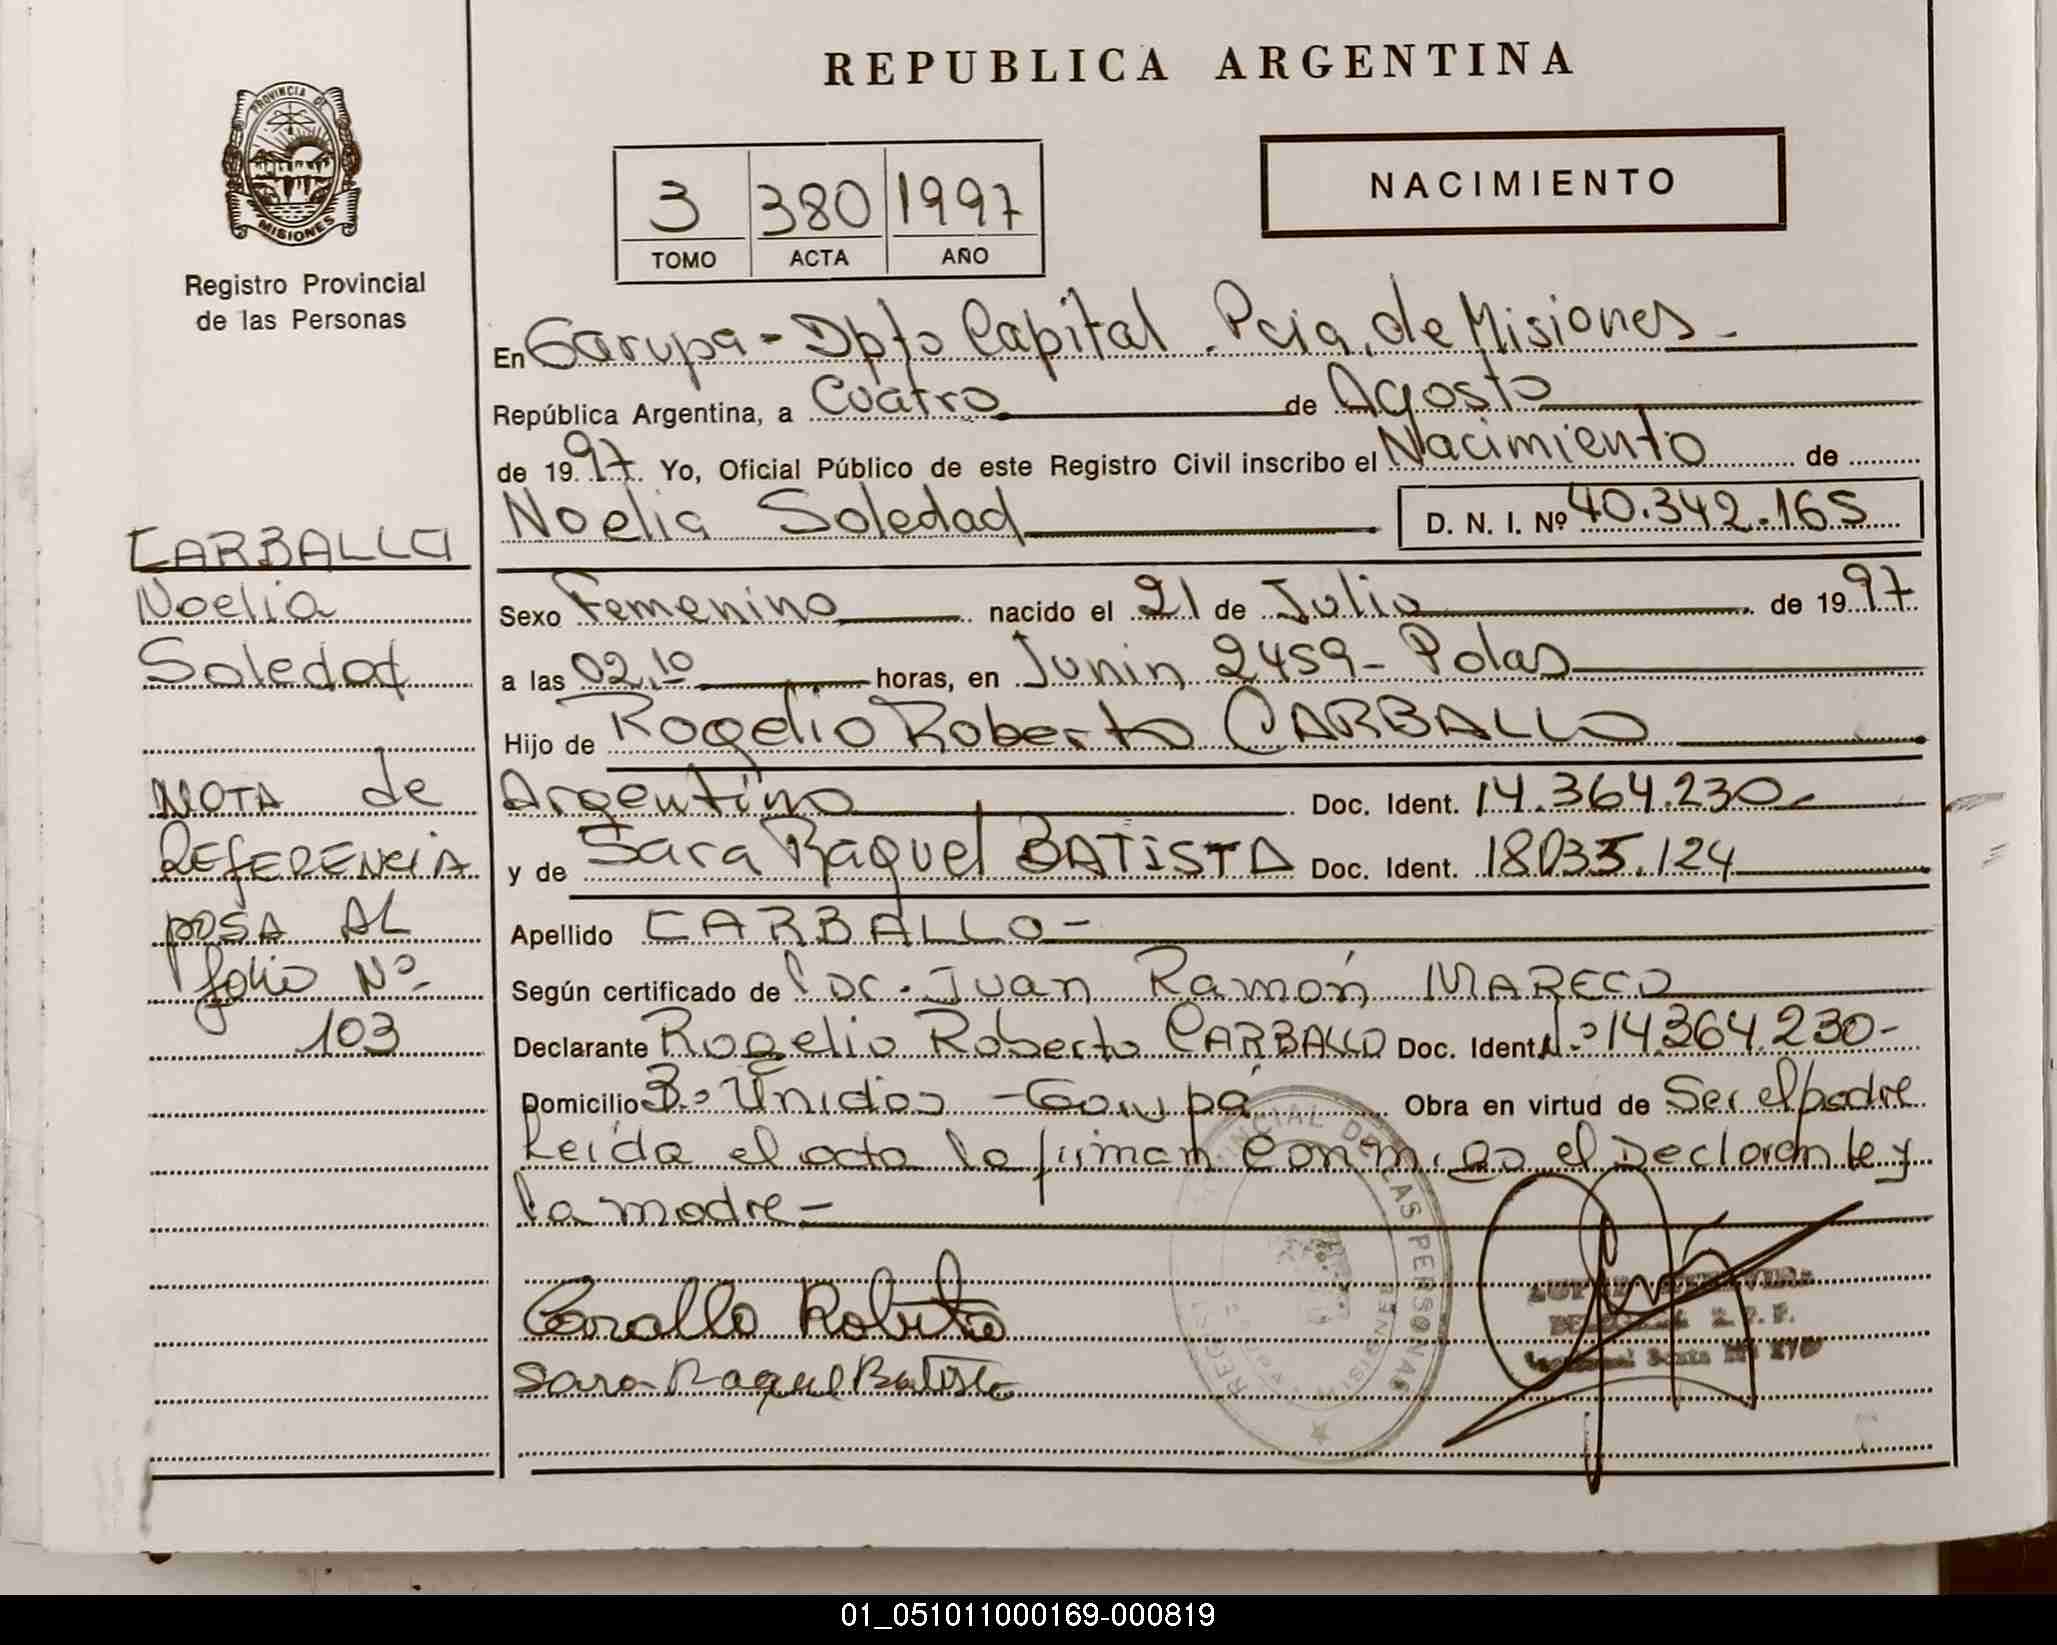 REPUBLICA ARGENTINA
PROVINCIA DE
MISIONES
Registro Provincial
de las Personas
3 380 1997
TOMO ACTA AÑO
NACIMIENTO
En Garupa - Dpto Capital. Pcia. de Misiones -
República Argentina, a Cuatro de Agosto
de 1997. Yo, Oficial Público de este Registro Civil inscribo el Nacimiento de
Noelia Soledad D. N. I. Nº 40.342.165
CARBALLO
Noelia
Soledad
Sexo Femenino nacido el 21 de Julio de 1997
a las 02.10 horas, en Junin 2459 - Pdas
Hijo de Rogelio Roberto CARBALLO
Argentino Doc. Ident. 14.364.230 -
y de Sara Raquel BATISTA Doc. Ident. 18.035.124
Apellido CARBALLO -
Según certificado de Doc. Juan Ramón MARECO
Declarante Rogelio Roberto CARBALLO Doc. Ident. Nº 14.364.230 -
Domicilio Bº Unidos - Garupá Obra en virtud de Ser el padre
Leída el acta la firman conmigo el Declarante y
la madre -
NOTA de
REFERENCIA
PASA AL
folio Nº
103
Carballo Roberto
Sara Raquel Batista
REGISTRO PROVINCIAL DE LAS PERSONAS
01_051011000169-000819